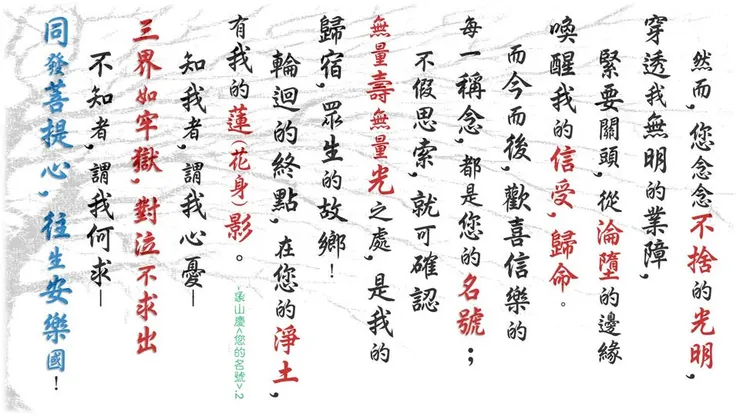 然而,您念念不捨的光明,
穿透我無明的業障,
緊要關頭,從淪墮的邊緣
喚醒我的信受,歸命。
而今而後,歡喜信樂的
每一稱念,都是您的名號;
不假思索,就可確認
無量壽無量光之處,是我的
歸宿,眾生的故鄉!
輪迴的終點,在您的淨土,
有我的蓮(花身)影。
-承山慶<您的名號>.2
知我者,謂我心憂—
三界如牢獄,對泣不求出
不知者,謂我何求—
同發菩提心,往生安樂國!